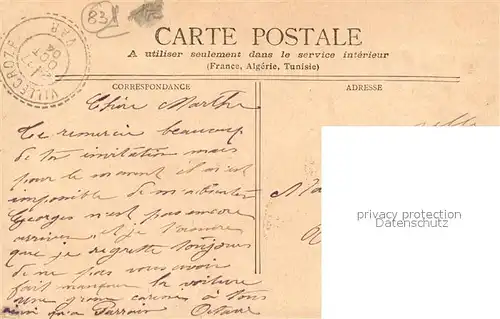 83
CARTE POSTALE
A utiliser seulement dans le service intérieur
(France, Algérie, Tunisie)
CORRESPONDANCE
ADRESSE
VILLECROZE
VAR
OCT
04
Chère Marthe
Te remercie beaucoup
de ton invitation mais
pour le moment il m'est
impossible de m'absenter
Georges n'est pas encore
arrivé et je
que je regrette toujours
de ne pas vous avoir
fait manquer la voiture
une grosse caresse à tous
Octave
privacy protection
www.delcampe.net